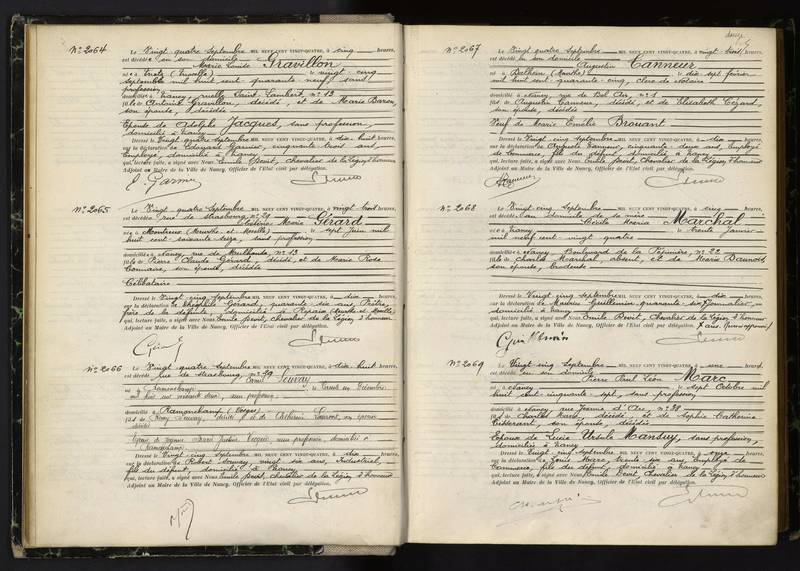 No 2064
Le Vingt quatre Septembre MIL NEUF CENT VINGT-QUATRE, à cinq heures,
est décédée en son domicile
Marie Louise Gravillon
née à (Moselle) le vingt cinq
septembre mil huit cent quarante neuf, sans
profession
domiciliée à Nancy, ruelle Saint Lambert, no 13
fille de Antoine Gravillon, décédé, et de Marie Baron,
son épouse, décédée
Epouse de Adolphe Jacques, sans profession,
domicilié à Nancy
Dressé le Vingt quatre septembre MIL NEUF CENT VINGT-QUATRE, à dix huit heures,
sur la déclaration de Edouard Garnier, cinquante trois ans,
Employé, domicilié à Nancy
qui, lecture faite, a signé avec Nous Emile Benit, Chevalier de la Légion d'honneur
Adjoint au Maire de la Ville de Nancy, Officier de l'Etat civil par délégation.
No 2065
Le Vingt quatre Septembre MIL NEUF CENT VINGT-QUATRE, à vingt trois heures,
est décédée rue de Strasbourg no 29
Marie Gérard
née à (Meurthe et Moselle) le sept Juin mil
huit cent soixante seize, sans profession
domiciliée à Nancy, rue de Mulhouse, no 13
fille de Pierre Claude Gérard, décédé, et de Marie Rose
son épouse, décédée
Célibataire
Dressé le Vingt cinq Septembre MIL NEUF CENT VINGT-QUATRE, à dix heures,
sur la déclaration de Théophile Gérard, quarante six ans, Prêtre,
frère de la défunte, domicilié à Repaix (Meurthe et Moselle)
qui, lecture faite, a signé avec Nous Emile Benit, chevalier de la Légion d'honneur
Adjoint au Maire de la Ville de Nancy, Officier de l'Etat civil par délégation.
No 2066
Le Vingt quatre Septembre MIL NEUF CENT VINGT-QUATRE, à dix huit heures,
est décédé rue de Strasbourg no 29
Louvay
né à Ramonchamp le trente un Décembre
mil huit cent soixante deux, sans profession
domicilié à Ramonchamp (Vosges)
fils de Rémy Louvay, décédé, et de Catherine Laurent, son épouse
décédée
sans profession, domiciliée à
Ramonchamp
Dressé le Vingt cinq Septembre MIL NEUF CENT VINGT-QUATRE, à dix heures,
sur la déclaration de Robert Louvay, vingt six ans, Industriel,
fils du défunt, domicilié à Nancy
qui, lecture faite, a signé avec Nous Emile Benit, chevalier de la Légion d'honneur
Adjoint au Maire de la Ville de Nancy, Officier de l'Etat civil par délégation.
No 2067
Le Vingt quatre Septembre MIL NEUF CENT VINGT-QUATRE, à vingt trois heures,
est décédé en son domicile
Augustin Canneur
né à (Meurthe) le dix sept février
mil huit cent quarante cinq, clerc de Notaire
domicilié à Nancy, rue de Bel Air, no 1
fils de Augustin Canneur, décédé, et de Elisabeth Cézard,
son épouse, décédée
Veuf de Marie Emélie Brouant
Dressé le Vingt cinq Septembre MIL NEUF CENT VINGT-QUATRE, à dix heures,
sur la déclaration de Auguste Canneur, cinquante deux ans, Employé
de Commerce, fils du défunt, domicilié à Nancy
qui, lecture faite, a signé avec Nous Emile Benit, Chevalier de la Légion d'honneur
Adjoint au Maire de la Ville de Nancy, Officier de l'Etat civil par délégation.
No 2068
Le Vingt cinq Septembre MIL NEUF CENT VINGT-QUATRE, à cinq heures,
est décédée au domicile de sa mère
Cécile Maria Marchal
née à Nancy le trente Janvier
mil neuf cent vingt quatre
domiciliée à Nancy, Boulevard de la Pépinière, no 22
fille de Charles Marchal, absent, et de Marie
son épouse, brodeuse
Dressé le Vingt cinq Septembre MIL NEUF CENT VINGT-QUATRE, à dix heures,
sur la déclaration de Maurice Guillemin, quarante six ans, Journalier,
domicilié à Nancy
qui, lecture faite, a signé avec Nous Emile Benit, Chevalier de la Légion d'honneur
Adjoint au Maire de la Ville de Nancy, Officier de l'Etat civil par délégation.
No 2069
Le Vingt cinq Septembre MIL NEUF CENT VINGT-QUATRE, à une heures,
est décédé en son domicile
Pierre Paul Léon Marc
né à Nancy le sept Octobre mil
huit cent cinquante sept, sans profession
domicilié à Nancy rue Jeanne d'Arc no 38
fils de Charles Marc, décédé, et de Sophie Catherine
son épouse, décédée
Epoux de Lucie Ursule Mansuy, sans profession,
domiciliée à Nancy
Dressé le Vingt cinq Septembre MIL NEUF CENT VINGT-QUATRE, à onze heures,
sur la déclaration de Louis Marc, trente six ans, Employé de
Commerce, fils du défunt, domicilié à Nancy
qui, lecture faite, a signé avec Nous Emile Benit, Chevalier de la Légion d'honneur
Adjoint au Maire de la Ville de Nancy, Officier de l'Etat civil par délégation.